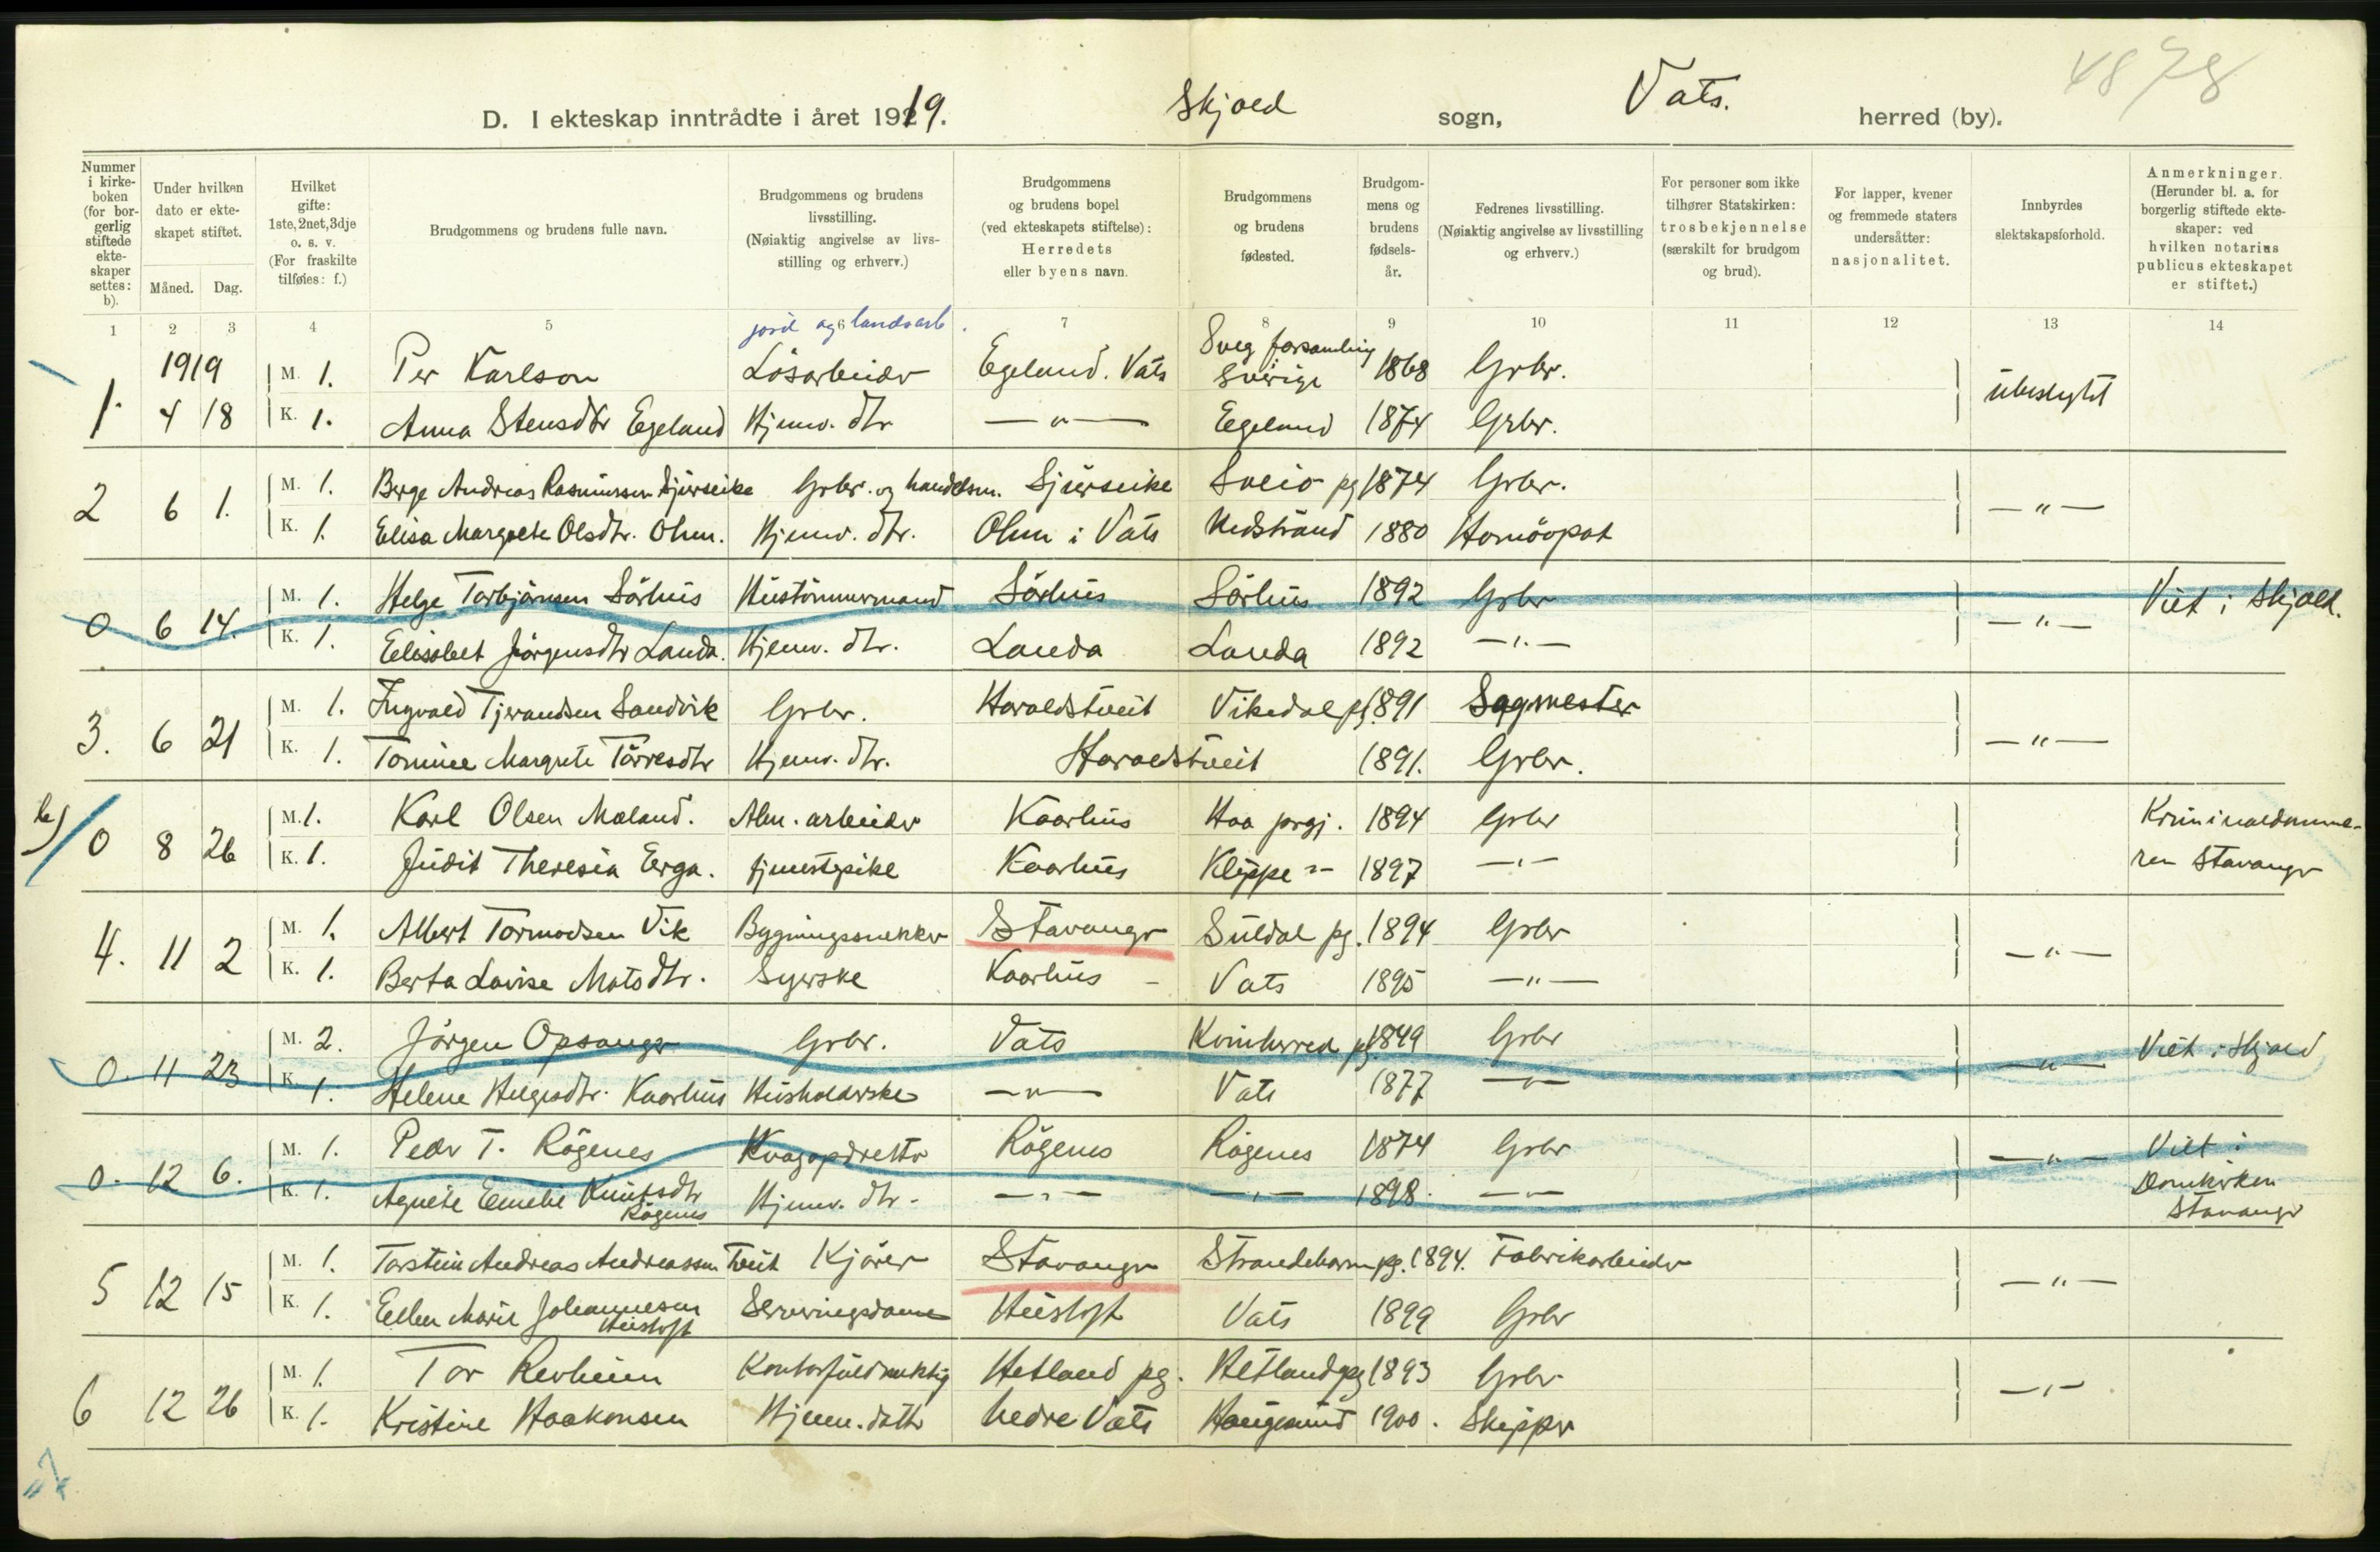 4878
D. I ekteskap inntrådte i året 1919. Skjold sogn, Vats. herred (by).
Nummer i kirkeboken (for borgerlig stiftede ekteskaper settes: b).
Under hvilken dato er ekteskapet stiftet.
Måned. Dag.
Hvilket gifte: 1ste, 2net, 3dje o. s. v. (For fraskilte tilføies: f.)
Brudgommens og brudens fulle navn.
Brudgommens og brudens livsstilling. (Nøiaktig angivelse av livsstilling og erhverv.)
Brudgommens og brudens bopel (ved ekteskapets stiftelse): Herredets eller byens navn.
Brudgommens og brudens fødested.
Brudgommens og brudens fødselsår.
Fedrenes livsstilling. (Nøiaktig angivelse av livsstilling og erhverv.)
For personer som ikke tilhører Statskirken: trosbekjennelse (særskilt for brudgom og brud).
For lapper, kvener og fremmede staters undersåtter: nasjonalitet.
Innbyrdes slektskapsforhold.
Anmerkninger. (Herunder bl. a. for borgerlig stiftede ekteskaper: ved hvilken notarius publicus ekteskapet er stiftet.)
1 2 3 4 5 6 7 8 9 10 11 12 13 14
jord og landsarb.
1919 M. 1. Per Karlson Løsarbeider Egeland. Vats Sveg forsamling Sverige 1868 Grbr. ubeslegtet
1. 4 18 K. 1. Anna Stensdtr Egeland Hjemv. dtr —"— Egeland 1874 Grbr.
2 6 1. M. 1. Berge Andreas Rasmussen Sjurseike Grbr. og handelsm. Sjurseike Sveio pg 1874 Grbr. —"—
K. 1. Elisa Margrete Olsdtr. Ohm. Hjemv. dtr. Ohm i Vats Nedstrand 1880 Homöopat
0 6 14. M. 1. Helge Torbjörnsen Sörhus Hustömmermand Sörhus Sörhus 1892 Grbr —"— Viet i Skjold.
K. 1. Elisabet Jörgensdtr Landa. Hjemv. dtr. Landa Landa 1892 —"—
3. 6 21 M. 1. Ingvald Tjerandsen Sandvik Grbr. Haraldstveit Vikedal pg. 1891 Sagmester —"—
K. 1. Tomine Margrete Törresdtr Hjemv. dtr. Haraldstveit 1891. Grbr.
b) 0 8 26 M. 1. Karl Olsen Mæland. Alm. arbeider Kaarhus Haa prgj. 1894 Grbr Kriminaldomme-
K. 1. Judit Theresia Erga. tjenestepike Kaarhus Klippe "– 1897 —"— ren Stavanger
4. 11 2 M. 1. Albert Tormodsen Vik Bygningssnekker Stavanger Suldal pg. 1894 Grbr —"—
K. 1. Berta Lovise Matsdtr. Syerske Kaarhus – Vats 1895 —"—
0. 11 23 M. 2. Jörgen Opsanger Grbr. Vats Kvinherred pg. 1849 Grbr —"— Viet i Skjold
K. 1. Helene Helgesdtr. Kaarhus Husholderske —"— Vats 1877 —"—
0. 12 6. M. 1. Peder T. Rögenes Kvægopdretter Rögenes Rögenes 1874 Grbr —"— Viet i
K. 1. Agnete Emelie Knutsdtr Rögenes Hjemv. dtr. —"— —"— 1898. —"— Domkirken Stavanger
5 12 15 M. 1. Torstein Andreas Andreassen Tveit Kjörer Stavanger Strandebarm pg. 1894. Fabrikarbeider —"—
K. 1. Ellen Marie Johannesen Husloft Serveringsdame Husloft Vats 1899 Grbr
6 12 26 M. 1. Tor Revheim Kontorfuldmektig Hetland pg. Hetland pg 1893 Grbr. —"—
K. 1. Kristine Haakonsen Hjem. datter Nedre Vats Haugesund 1900. Skipper